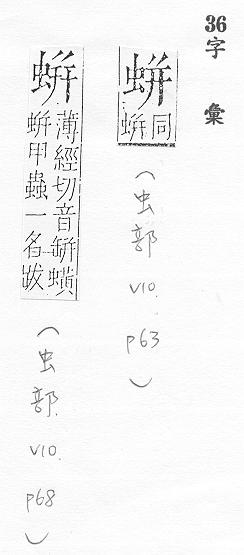 36 字彙
蛢
同
蛢
(虫部 V10. p63)
蛢
薄經切音缾蟥
蛢甲蟲一名蛂
(虫部. V10. p68)